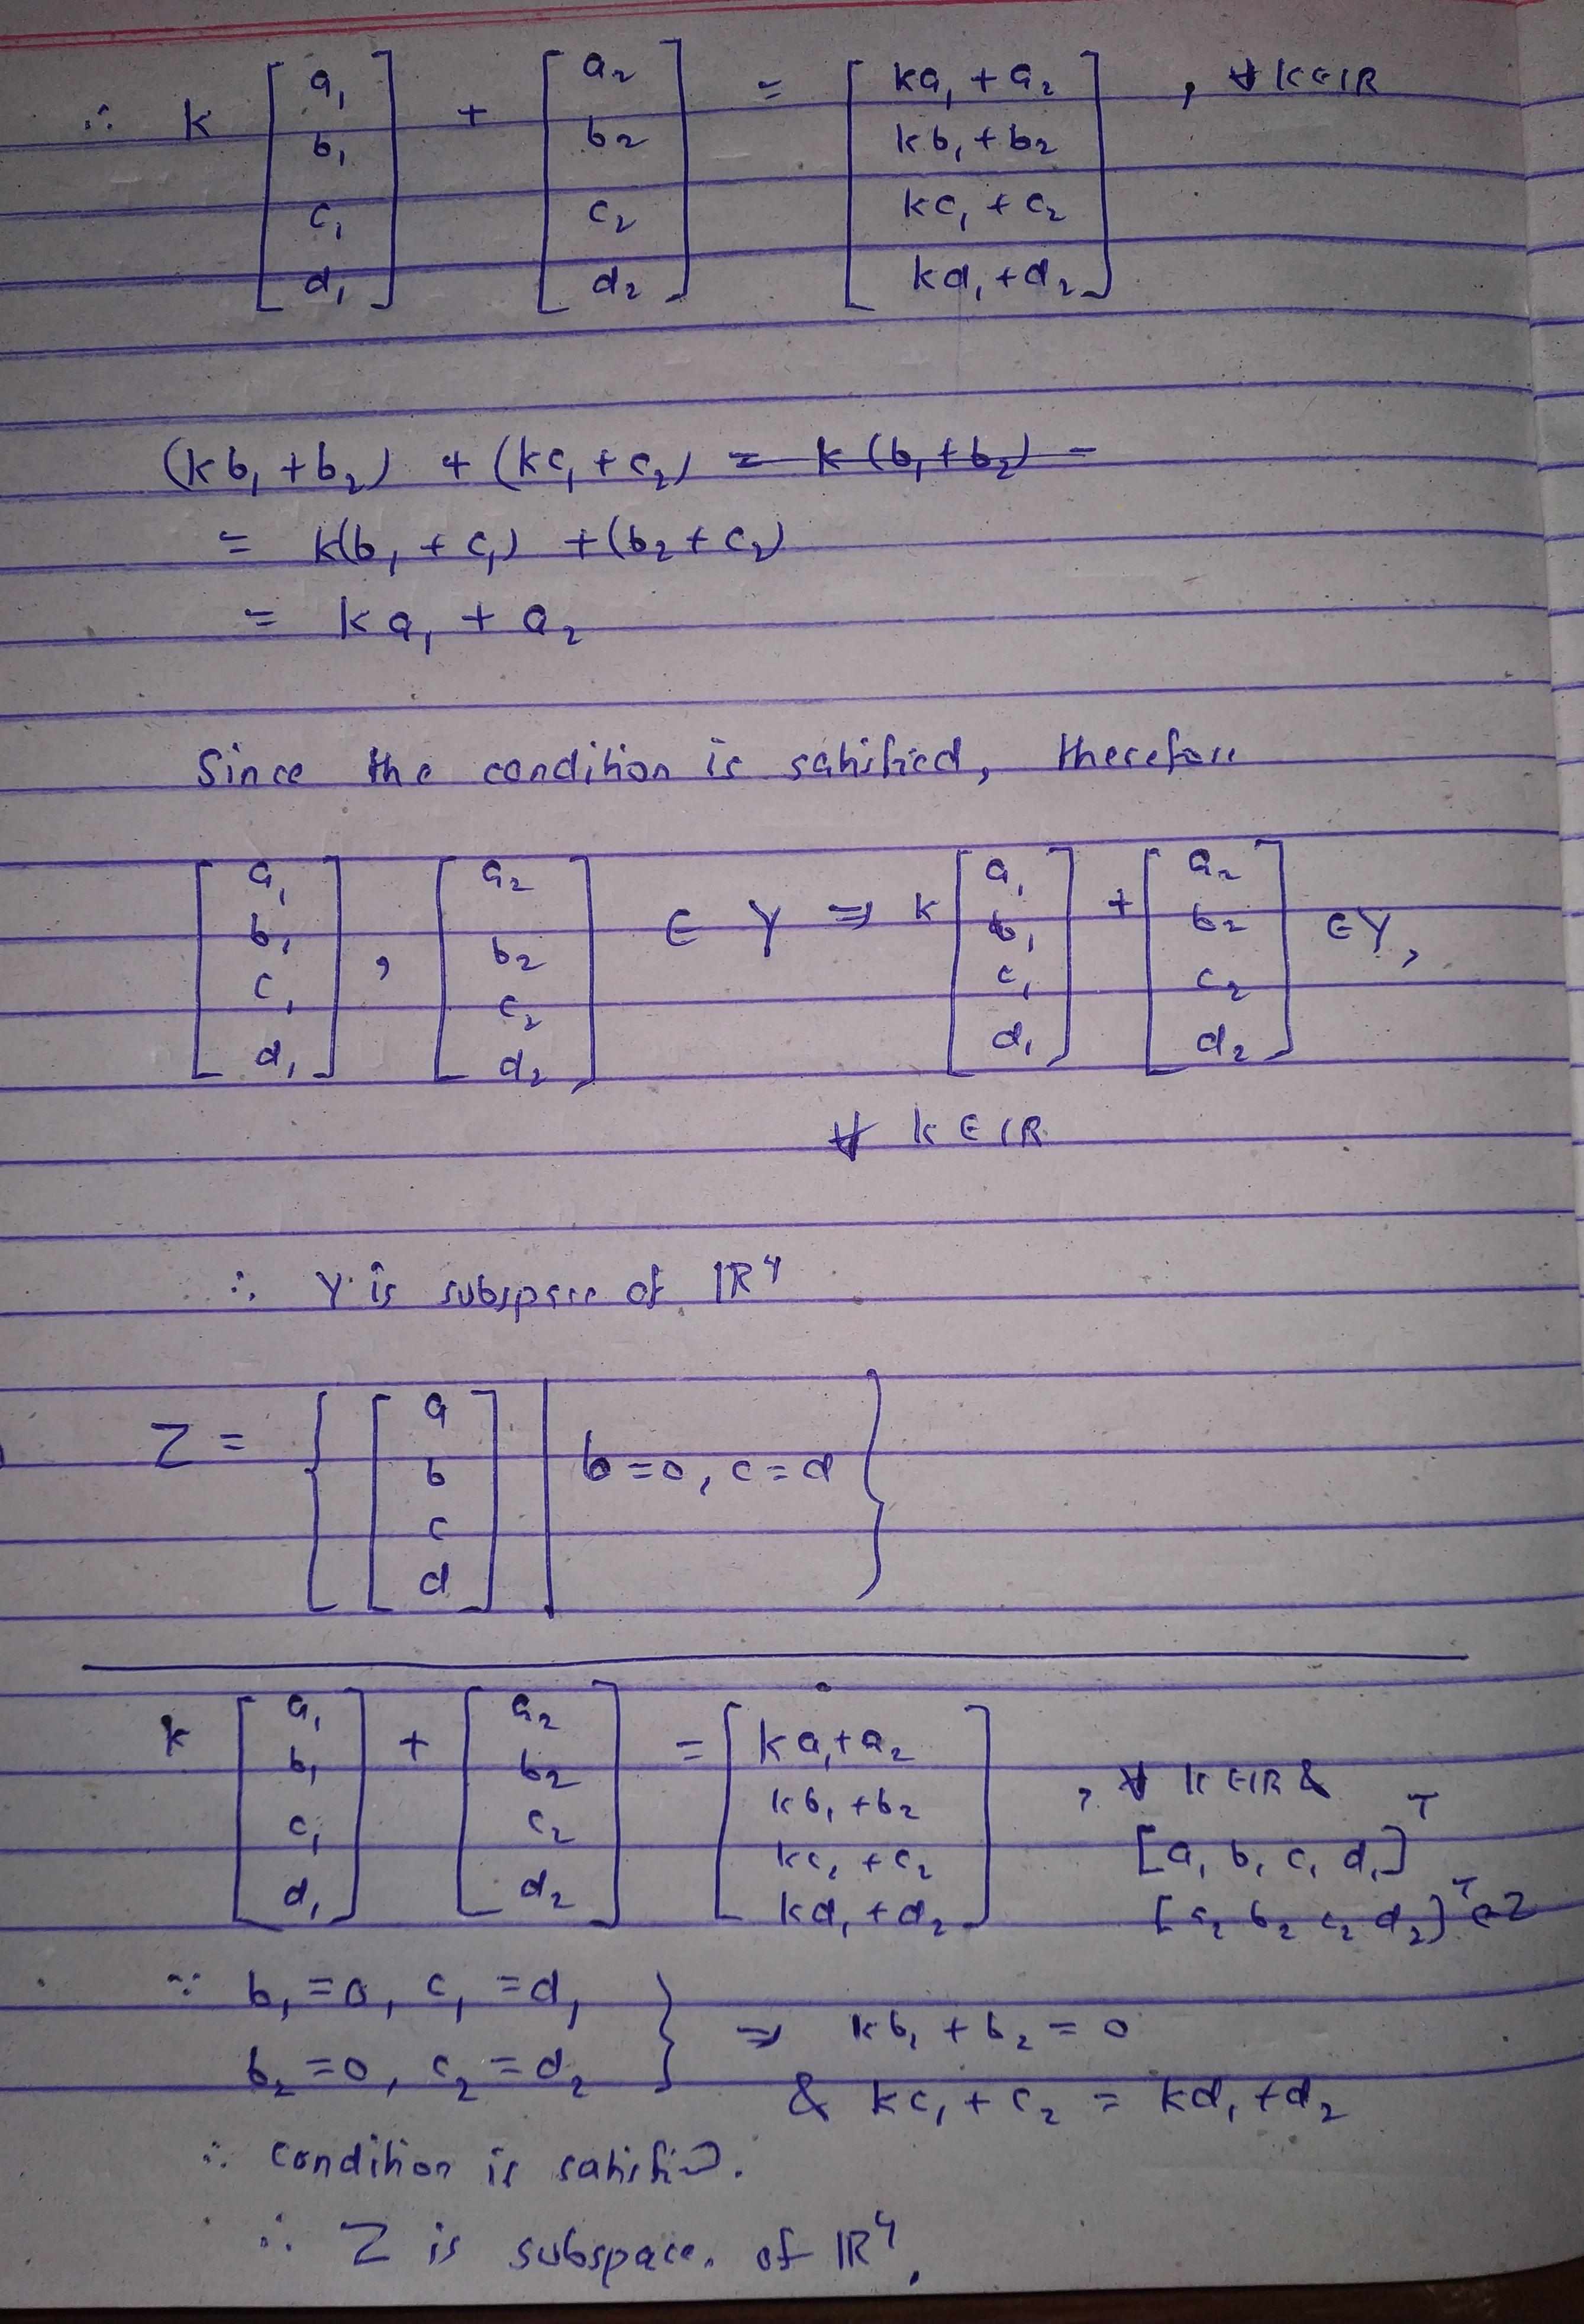 ∴ k [a₁ b₁ c₁ d₁] + [a₂ b₂ c₂ d₂] = [ka₁ + a₂ kb₁ + b₂ kc₁ + c₂ kd₁ + d₂] , ∀ k∈ℝ
(kb₁ + b₂) + (kc₁ + c₂) = k(b₁ + b₂) =
= k(b₁ + c₁) + (b₂ + c₂)
= ka₁ + a₂
Since the condition is satisfied, therefore
[a₁ b₁ c₁ d₁] , [a₂ b₂ c₂ d₂] ∈ Y ⇒ k [a₁ b₁ c₁ d₁] + [a₂ b₂ c₂ d₂] ∈ Y,
∀ k ∈ ℝ
∴ Y is subspace of ℝ⁴
Z = { [a b c d] | b=0, c=d }
k [a₁ b₁ c₁ d₁] + [a₂ b₂ c₂ d₂] = [ka₁ + a₂ kb₁ + b₂ kc₁ + c₂ kd₁ + d₂] , ∀ k∈ℝ &
[a₁ b₁ c₁ d₁]ᵀ
[a₂ b₂ c₂ d₂]ᵀ ∈ Z
∵ b₁ = 0, c₁ = d₁
b₂ = 0, c₂ = d₂ } ⇒ kb₁ + b₂ = 0
& kc₁ + c₂ = kd₁ + d₂
∴ condition is satisfied.
∴ Z is subspace. of ℝ⁴.